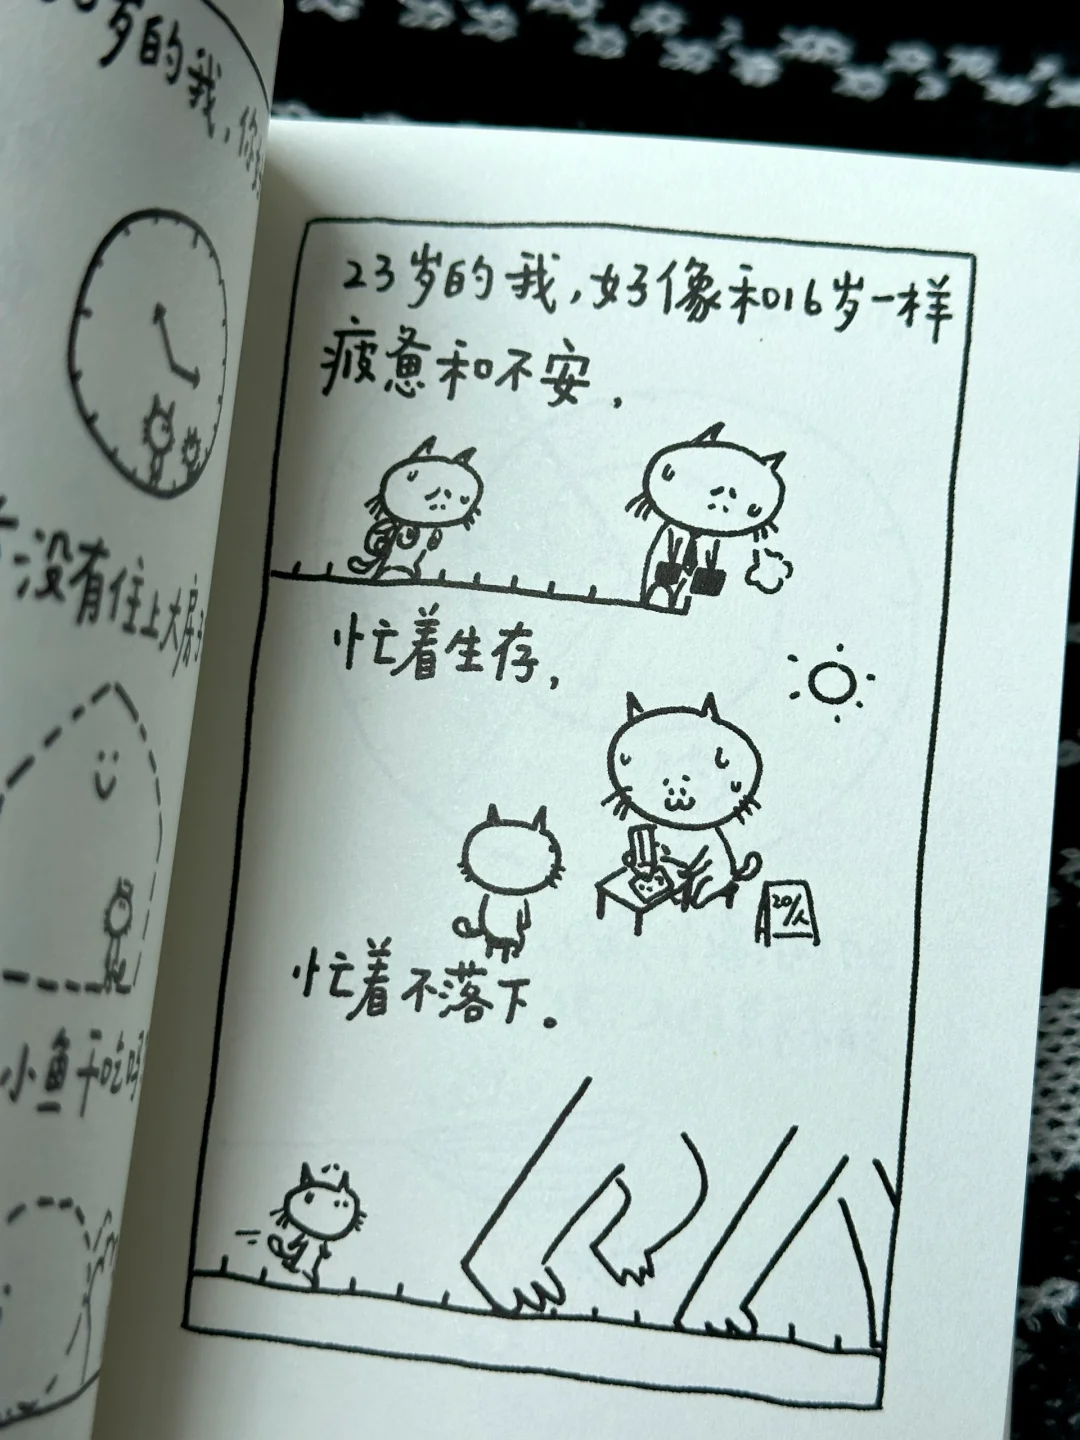 岁的我，你
没有住上大房
小鱼干吃吗
23岁的我，好像和16岁一样
疲惫和不安，
忙着生存，
20/人
忙着不落下。